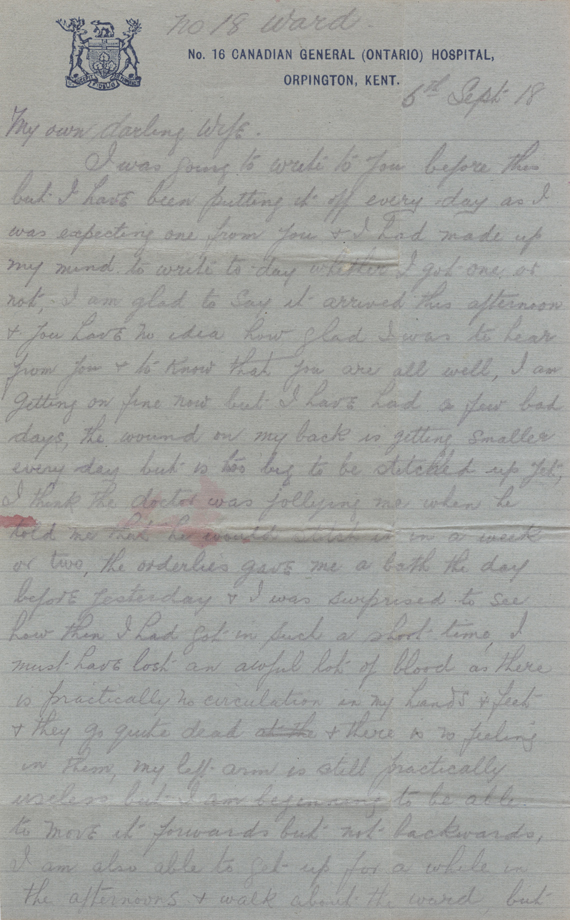 no 18 Ward.
No. 16 CANADIAN GENERAL (ONTARIO) HOSPITAL,
ORPINGTON, KENT.
6th Sept 18
My own darling Wife.
I was going to write to you before this
but I have been putting it off every day as I
was expecting one from you & I had made up
my mind to write to-day whether I got one or
not, I am glad to say it arrived this afternoon
& you have no idea how glad I was to hear
from you & to know that you are all well, I am
getting on fine now but I have had a few bad
days, the wound on my back is getting smaller
every day but is too big to be stitched up yet,
I think the doctor was jollying me when he
told me that he would stitch it in a week
or two, the orderlies gave me a bath the day
before yesterday & I was surprised to see
how thin I had got in such a short time, I
must have lost an awful lot of blood as there
is practically no circulation in my hands & feet
& they go quite dead at the & there is no feeling
in them, my left arm is still practically
useless but I am beginning to be able
to move it forwards but not backwards,
I am also able to get up for a while in
the afternoons & walk about the ward but